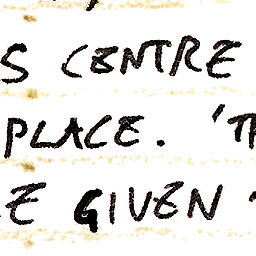 S CENTRE
PLACE. 'T
E GIVEN